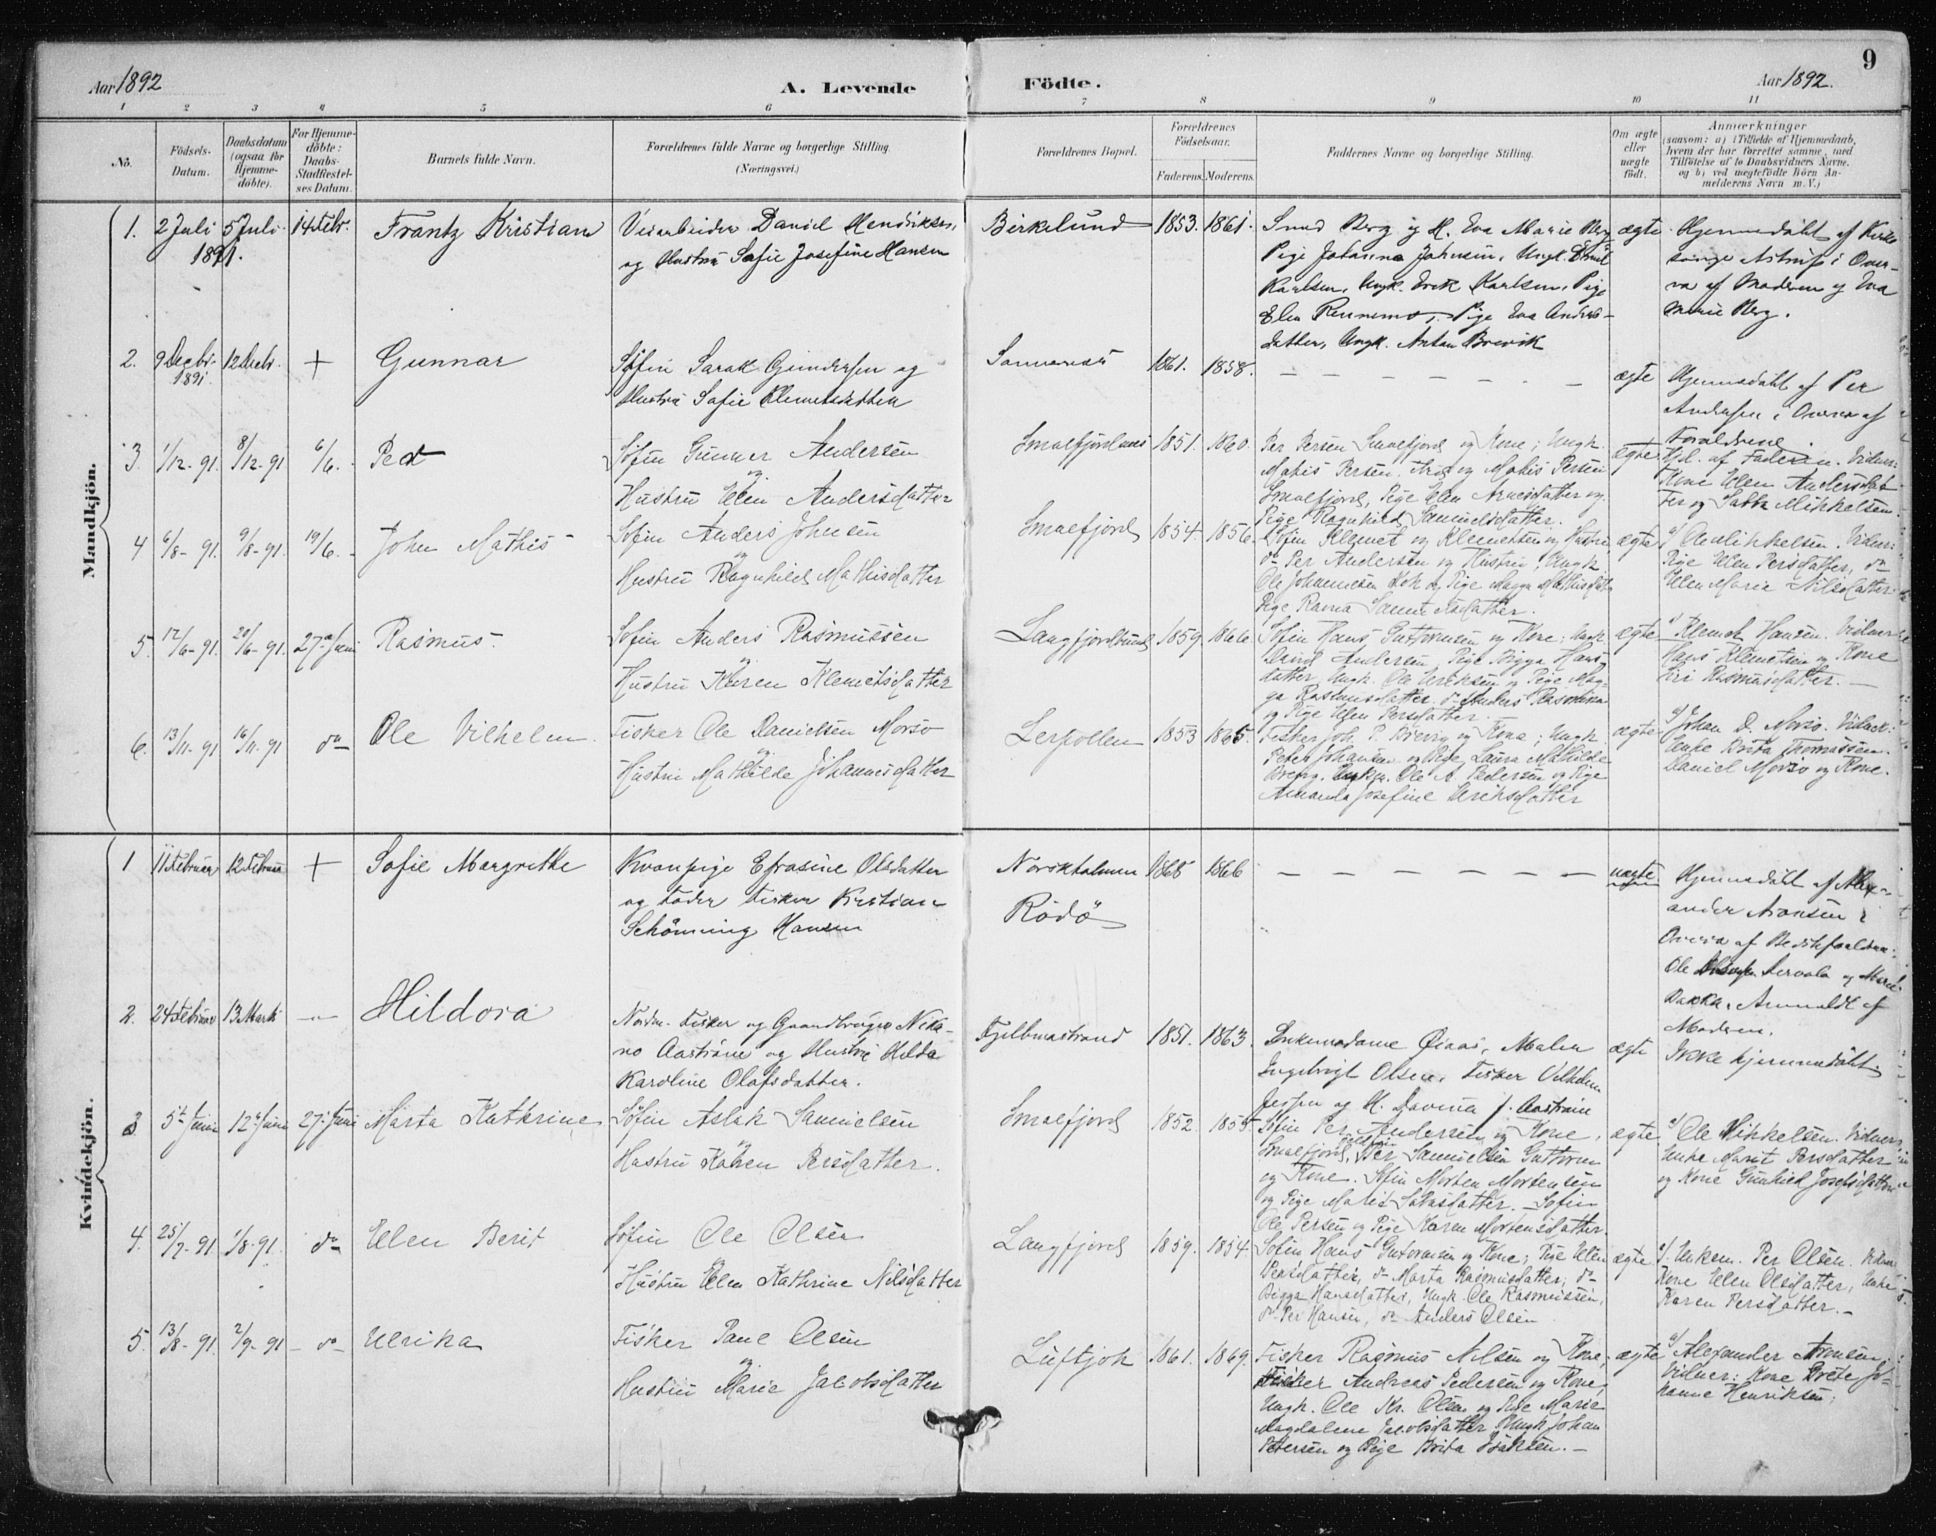 Aar 1892
A. Levende
Födte.
Aar 1892.
9
1 2 3 4 5 6 7 8 9 10 11
No.
Födsels-
Datum.
Daabsdatum
(ogsaa for
Hjemme-
döbte).
For Hjemme-
döbte:
Daabs-
Stadfæstel-
ses Datum.
Barnets fulde Navn.
Forældrenes fulde Navne og borgerlige Stilling.
(Næringsvei.)
Forældrenes Bopæl.
Forældrenes
Födselsaar.
Faderens. Moderens.
Faddernes Navne og borgerlige Stilling.
Om ægte
eller
uægte
födt.
Anmærkninger
(saasom: a) i Tilfælde af Hjemmedaab,
hvem der har forrettet samme, med
Tilföielse af to Daabsvidners Navne.
og b) ved uægtefödte Börn An-
melderens Navn m. V.)
Mandkjön.
1. 2 Juli 5 Juli 14 Febr. Frantz Kristian Veiarbeider Daniel Hendriksen,
1891.
og Hustru Sofie Josefine Hansen
Birkelund 1853. 1861. Smed Berg og H. Eva Marie Berg
Pige Johanna Johnsen, Ungk.
Karlsen, Ungk. Erik Karlsen, Pige
Elen Rennemo, Pige Eva Anders-
datter, Ungk. Anton Brevik
ægte Hjemmedöbt af Kirke
sanger Astrup i Over-
vær af Moderen og Eva
Marie Berg.
2. 9 Decbr. 12 Decbr. + Gunnar Søfin Sarak Gundersen og
1891
Hustru Sofie Klemetsdatter
1861. 1858. — — — — — —
ægte Hjemmedöbt af Per
Andersen i Overvær af
Forældrene.
3. 1/12-91 8/12-91 6/6. Peder Søfin Gunner Andersen
og
Hustru Elen Andersdatter
Smalfjordnæs 1851. 1860. Per Persen Smalfjord og Kone; Ungk.
Mathis Persen, og Mathis Persen
Smalfjord, Pige Elen Arnesdatter og
Pige Ragnhild Samuelsdatter.
ægte Hjd. af Faderen. Vidner:
Kone Elen Andersdat-
ter og Sabba Mikkelsen.
4 6/8-91. 9/8-91. 19/6. John Mathis Søfin Anders Johnsen
og
Hustru Ragnhild Mathisdatter
Smalfjord 1854. 1856. Søfin Klemet og Klemetsen og Hustru
do Per Andersen og Hustru, Ungk
Ole Johannesen og Pige Magga Mathisdatt.
Pige Ravna Samuelsdatter.
ægte a/ Ole Mikkelsen. Vidner:
Pige Elen Persdatter, do
Elen Marie Nilsdatter
5. 12/6-91. 20/6-91. 27de Juni Rasmus Søfin Anders Rasmussen
og
Hustru Karen Klemetsdatter
Langfjordbund 1859. 1866. Søfin Hans Guttormsen og Kone; Ungk
David Andersen, Pige Bigga Hans-
datter, Ungk. Ole Uriksen og Pige Mag-
ga Rasmusdatter, do Anders Rasmussen
og Pige Elen Persdatter.
ægte a/ Klemet Hansen. Vidner
Hans Klemetsen og Kone
Siri Rasmusdatter.
6. 13/11-91 16/11-91 do Ole Vilhelm Fisker Ole Danielsen Morsø
og
Hustru Mathilde Johannesdatter
Lerpollen 1853 1865. Fisker Joh. P. Brevig og Kona; Ungk.
Peter Johansen og Pige Laura Mathilde
Brevig. Ungk. Ole A. Pedersen og Pige
Amanda Josefine Eriksdatter
ægte a/ Johan D. Morsø. Vidner:
Enke Brita Thomassen.
Daniel Morsø og Kone.
Kvindekjön.
1 11 Februar 12 Februar + Sofie Margrethe Kvænpige Efrasine Olsdatter
og Fader Fisker Kristian
Schönning Hansen
Norskholmen 1868 1866 — — — — — —
Rödö
uægte Hjemmedöbt af Alex-
ander Aronsen i
Overvær af Bedsteforældrene
Ole Aervala og Marie
Pakka. Anmeldt af
Moderen.
2. 24 Februar 13 Marts — Hildora Nordm. Fisker og Gaardbruger Nika-
no Aaström og Hustru Hilda
Karoline Olafsdatter.
Fjelbmastrand 1851. 1863. Enkemadame Qiaas, Maler
Ingebrigt Olsen, Fisker Vilhelm
Jessen og H. Davina f. Aaström
ægte Ikke hjemmedöbt.
3 5te Juni 12te Juni 27de Juni Marta Kathrine Søfin Aslak Samuelsen
og
Hustru Karen Persdatter.
Smalfjord 1852. 1855. Søfin Per Andersen og Kone,
Smalfjord, Per Samuelsen Guttorm
og Kone. Søfin Morten Mortensen
og Pige Marit Sabasdatter. Søfin
Ole Persen og Pige Karen Mortensdatter.
ægte a/ Ole Mikkelsen. Vidner:
Enke Marit Persdatter
og Kone Gunhild Josefsdatter
4. 25/7-91 1/8-91. do Elen Berit Søfin Ole Olsen
og
Hustru Elen Kathrine Nilsdatter
Langfjord 1859. 1854. Søfin Hans Guttormsen og Kone; Pige Elen
Persdatter, do Marta Rasmusdatter, do
Bigga Hansdatter, Ungk. Ole Rasmussen,
do Per Hansen, do Anders Olsen
ægte a/ Enkem. Per Olsen. Vidner
Kone Elen Olsdatter, Enke
Karen Persdatter.
5. 13/8-91. 2/9-91 do Ulrika Fisker Paul Olsen
og
Hustru Marie Jacobsdatter
Luftjok 1861. 1869. Fisker Rasmus Nilsen og Kone,
Fisker Andreas Pedersen og Kone,
Ungk. Ole Kr. Olsen og Pige Marie
Magdalena Jacobsdatter, Ungk Johan
Petersen og Pige Brita Isaksen.
ægte a/ Alexander Aronsen,
Vidner: Kone Brete Jo-
hanne Henriksen;